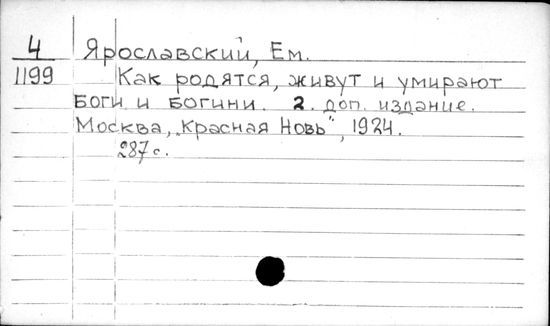 4 Ярославский, Ем.
1199 Как родятся, живут и умирают
боги и богини. 2. доп. издание.
Москва, „Красная Новь", 1924.
287 с.